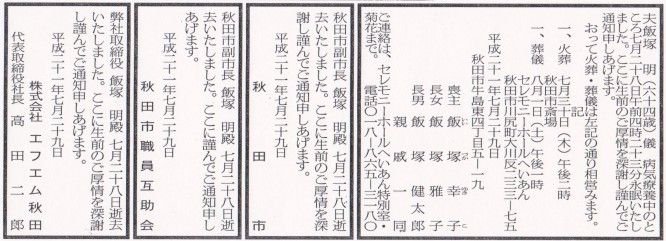 夫飯塚 明(六十四歳)儀 病気療養中のと
ころ七月二十八日午前四時二十三分永眠いたし
ました。ここに生前のご厚情を深謝し謹んでご
通知申しあげます。
おって火葬・葬儀は左記の通り相営みます。
記
一、火葬 七月三十日(木)午後二時
秋田市斎場
一、葬儀 八月一日(土)午後一時
セレモニーホールへいあん
秋田市川尻町大川反二三三-七五
平成二十一年七月二十九日
秋田市牛島東四丁目五-十九
喪主 飯塚幸子
長女 飯塚雅子
長男 飯塚健太郎
親戚一同
ご連絡は、セレモニーホールへいあん特別室・
菊花まで。 電話〇一八-八六五-三一八〇
秋田市副市長 飯塚 明殿 七月二十八日逝
去いたしました。ここに生前のご厚情を深
謝し謹んでご通知申しあげます。
平成二十一年七月二十九日
秋田市
秋田市副市長 飯塚 明殿 七月二十八日逝
去いたしました。ここに謹んでご通知申し
あげます。
平成二十一年七月二十九日
秋田市職員互助会
弊社取締役 飯塚 明殿 七月二十八日逝去
いたしました。ここに生前のご厚情を深謝
し謹んでご通知申しあげます。
平成二十一年七月二十九日
株式会社 エフエム秋田
代表取締役社長 高田二郎